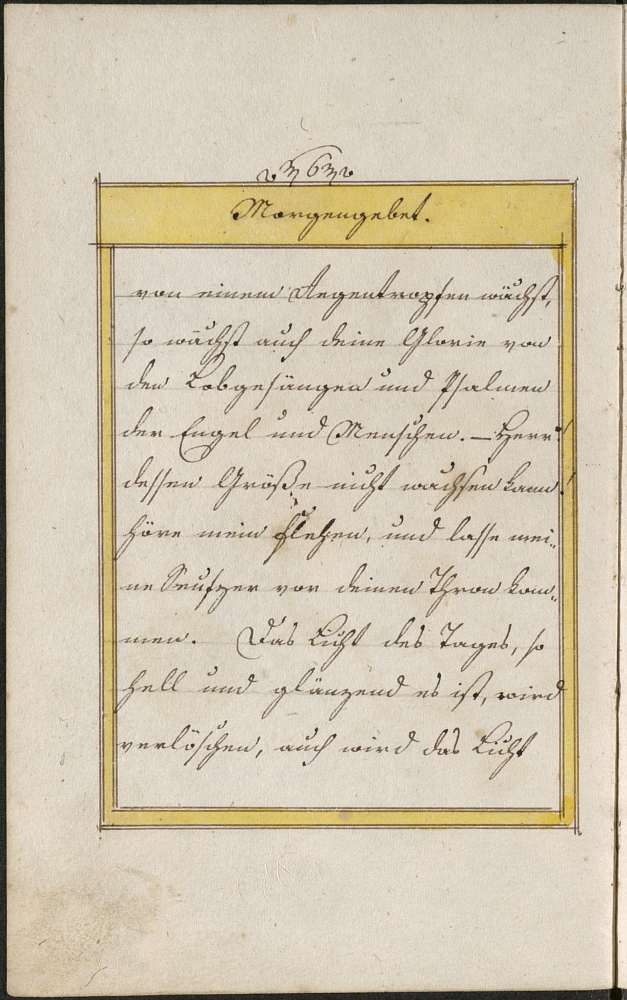 6
Morgengebet.
von einem Regentropfen wächst,
so wächst auch deine Glorie von
den Lobgesängen und Psalmen
der Engel und Menschen. – Herr!
dessen Größe nicht wachsen kann!
höre mein Flehen, und lasse mei„
ne Seufzer vor deinen Thron kom„
men. Das Licht des Tages, so
hell und glänzend es ist, wird
verlöschen, auch wird das Licht